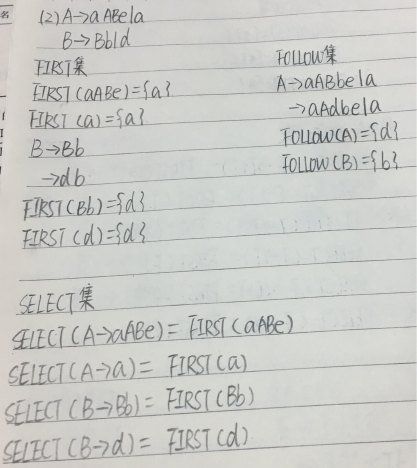 (2) A→aABe|a
B→Bb|d
FIRST集
FIRST(aABe)={a}
FIRST(a)={a}
B→Bb
→db
FIRST(Bb)={d}
FIRST(d)={d}
FOLLOW集
A→aABbe|a
→aAdbe|a
FOLLOW(A)={d}
FOLLOW(B)={b}
SELECT集
SELECT(A→aABe)=FIRST(aABe)
SELECT(A→a)=FIRST(a)
SELECT(B→Bb)=FIRST(Bb)
SELECT(B→d)=FIRST(d)